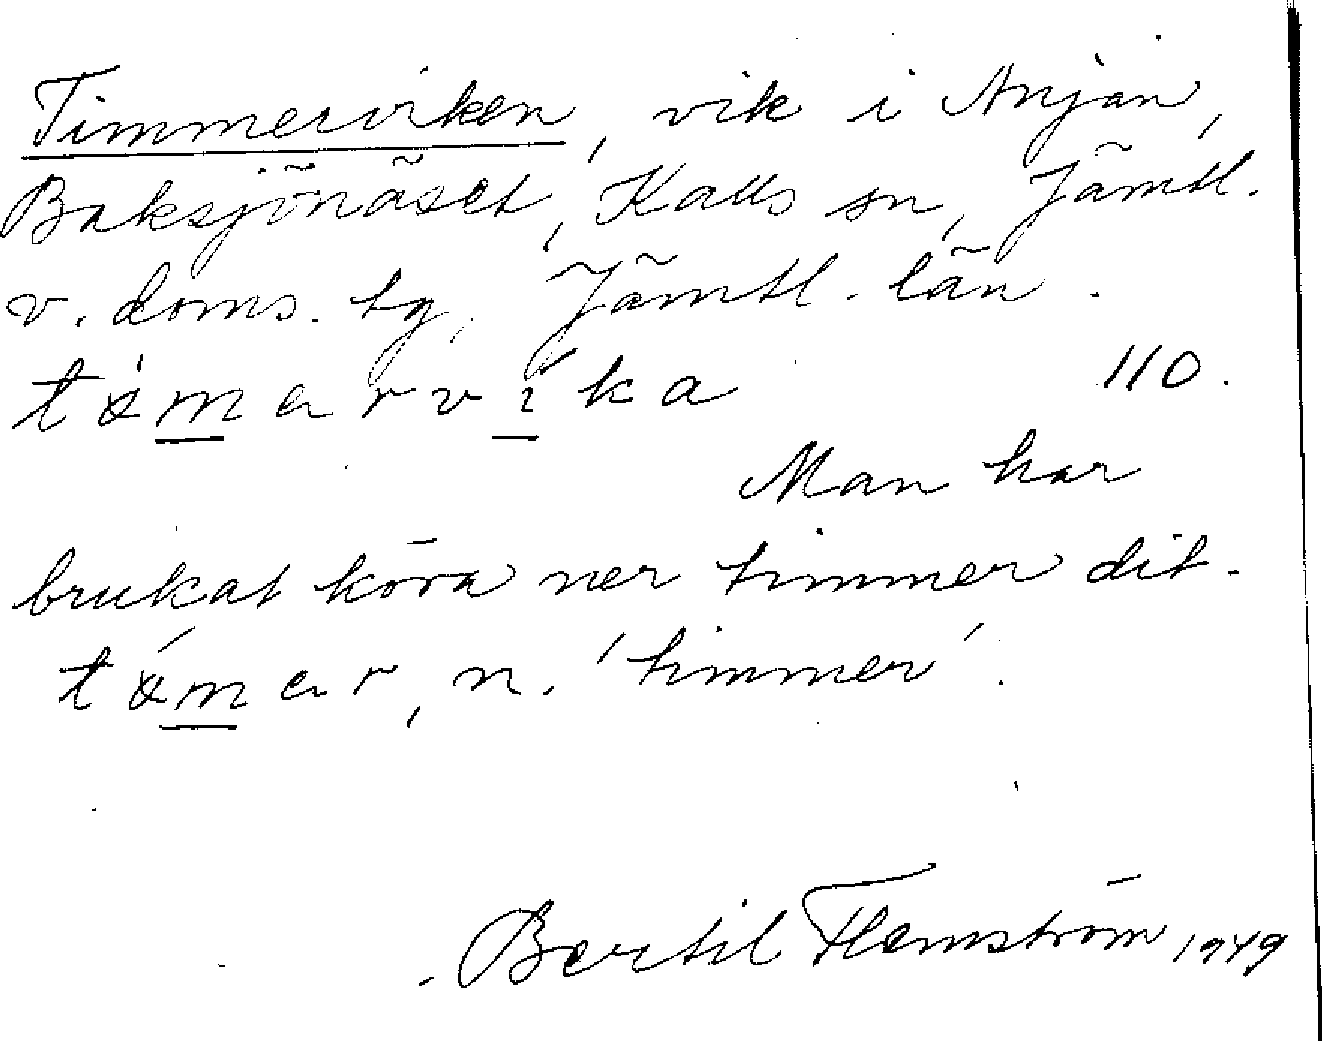 Timmerviken, vik i Anjan,
Baksjönäset, Kalls sn, Jämtl.
v. doms. tg, Jämtl. län.
tømarvika 110.
Man har
brukat köra ner timmer dit.
tømar, n. 'timmer'.
Bertil Flemström 1949